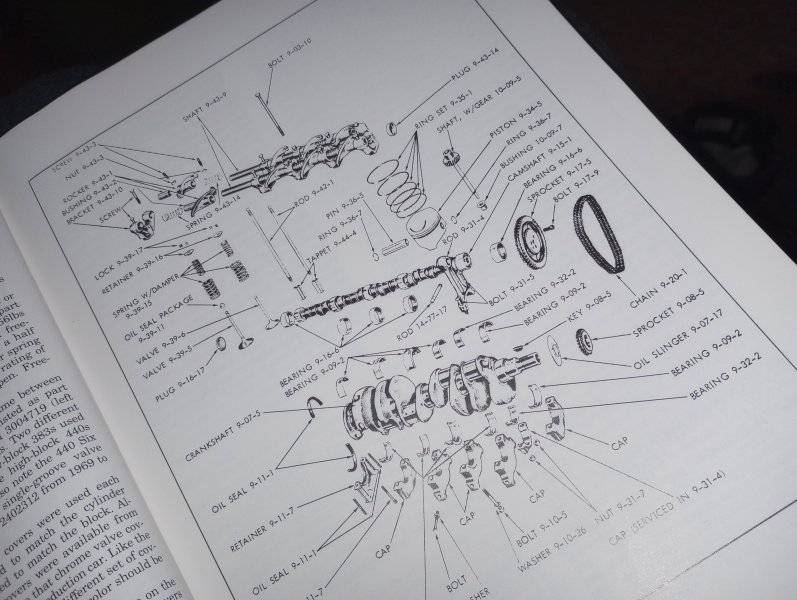 BOLT 9-03-10
PLUG 9-43-14
SHAFT 9-43-9
RING SET 9-35-1
SHAFT, W/GEAR 10-09-5
PISTON 9-34-5
RING 9-36-7
BUSHING 10-09-7
CAMSHAFT 9-15-1
BEARING 9-16-6
SPROCKET 9-17-5
BOLT 9-17-9
SCREW 9-43-3
NUT 9-43-3
ROCKER 9-43-1
BUSHING 9-43-2
BRACKET 9-43-10
SCREW
SPRING 9-43-14
ROD 9-42-1
PIN 9-36-5
RING 9-36-7
TAPPET 9-44-4
ROD 9-31-4
LOCK 9-39-17
RETAINER 9-39-16
SPRING W/DAMPER
9-39-15
OIL SEAL PACKAGE
9-39-11
VALVE 9-39-6
VALVE 9-39-5
PLUG 9-16-17
BEARING 9-16-6
BEARING 9-09-2
ROD 14-77-17
BOLT 9-31-5
BEARING 9-32-2
BEARING 9-09-2
KEY 9-08-5
CHAIN 9-20-1
SPROCKET 9-08-5
OIL SLINGER 9-07-17
BEARING 9-09-2
BEARING 9-32-2
CRANKSHAFT 9-07-5
OIL SEAL 9-11-1
RETAINER 9-11-7
OIL SEAL 9-11-1
CAP
CAP
CAP
CAP
CAP
BOLT
BOLT 9-10-5
WASHER 9-10-26
NUT 9-31-7
CAP (SERVICED IN 9-31-4)
or
part
free-
a half
spring
rating of
Free-
between
as part
3004719 (left
Two different
-block 383s used
high-block 440s
note the 440 Six
single-groove valve
2402312 from 1969 to
covers were used each
to match the cylinder
to match the block. Al-
were available from
that chrome valve cov-
car. Like the
different set of cov-
color should be
on the